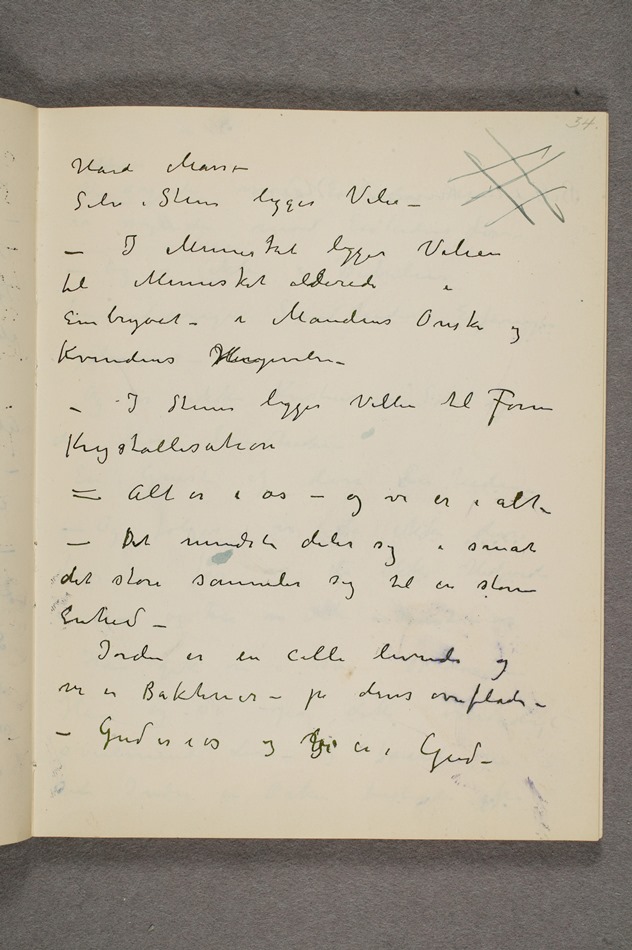 34.
Haard Masse
Selv i Stenen ligger Vilie –
– I Mennesket ligger Velien
til Mennesket allerede i
Embryoet – i Mandens Ønske og
Kvindens
– I Stenen ligger Villien til Form
Krystallisation
= Alt er i os – og vi er i alt –
– Det mindste deler sig i smat
det store sammler sig til en større
Enhed –
Jorden er en celle levende og
vi er Bakterier – på dens overflade –
– Gud er i os og Vi er i Gud –